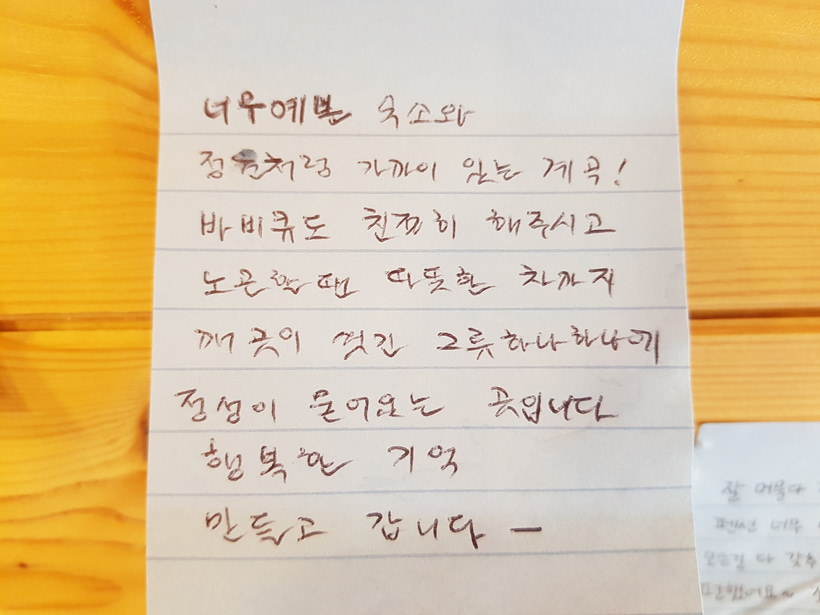 너무예쁜 숙소와
정원처럼 가까이 있는 계곡!
바비큐도 친절히 해주시고
노곤할땐 따뜻한 차까지
깨끗이 씻긴 그릇하나하나에
정성이 묻어오는 곳입니다
행복한 기억
만들고 갑니다 ㅡ
잘 머물다
펜션 너무
다 갖추